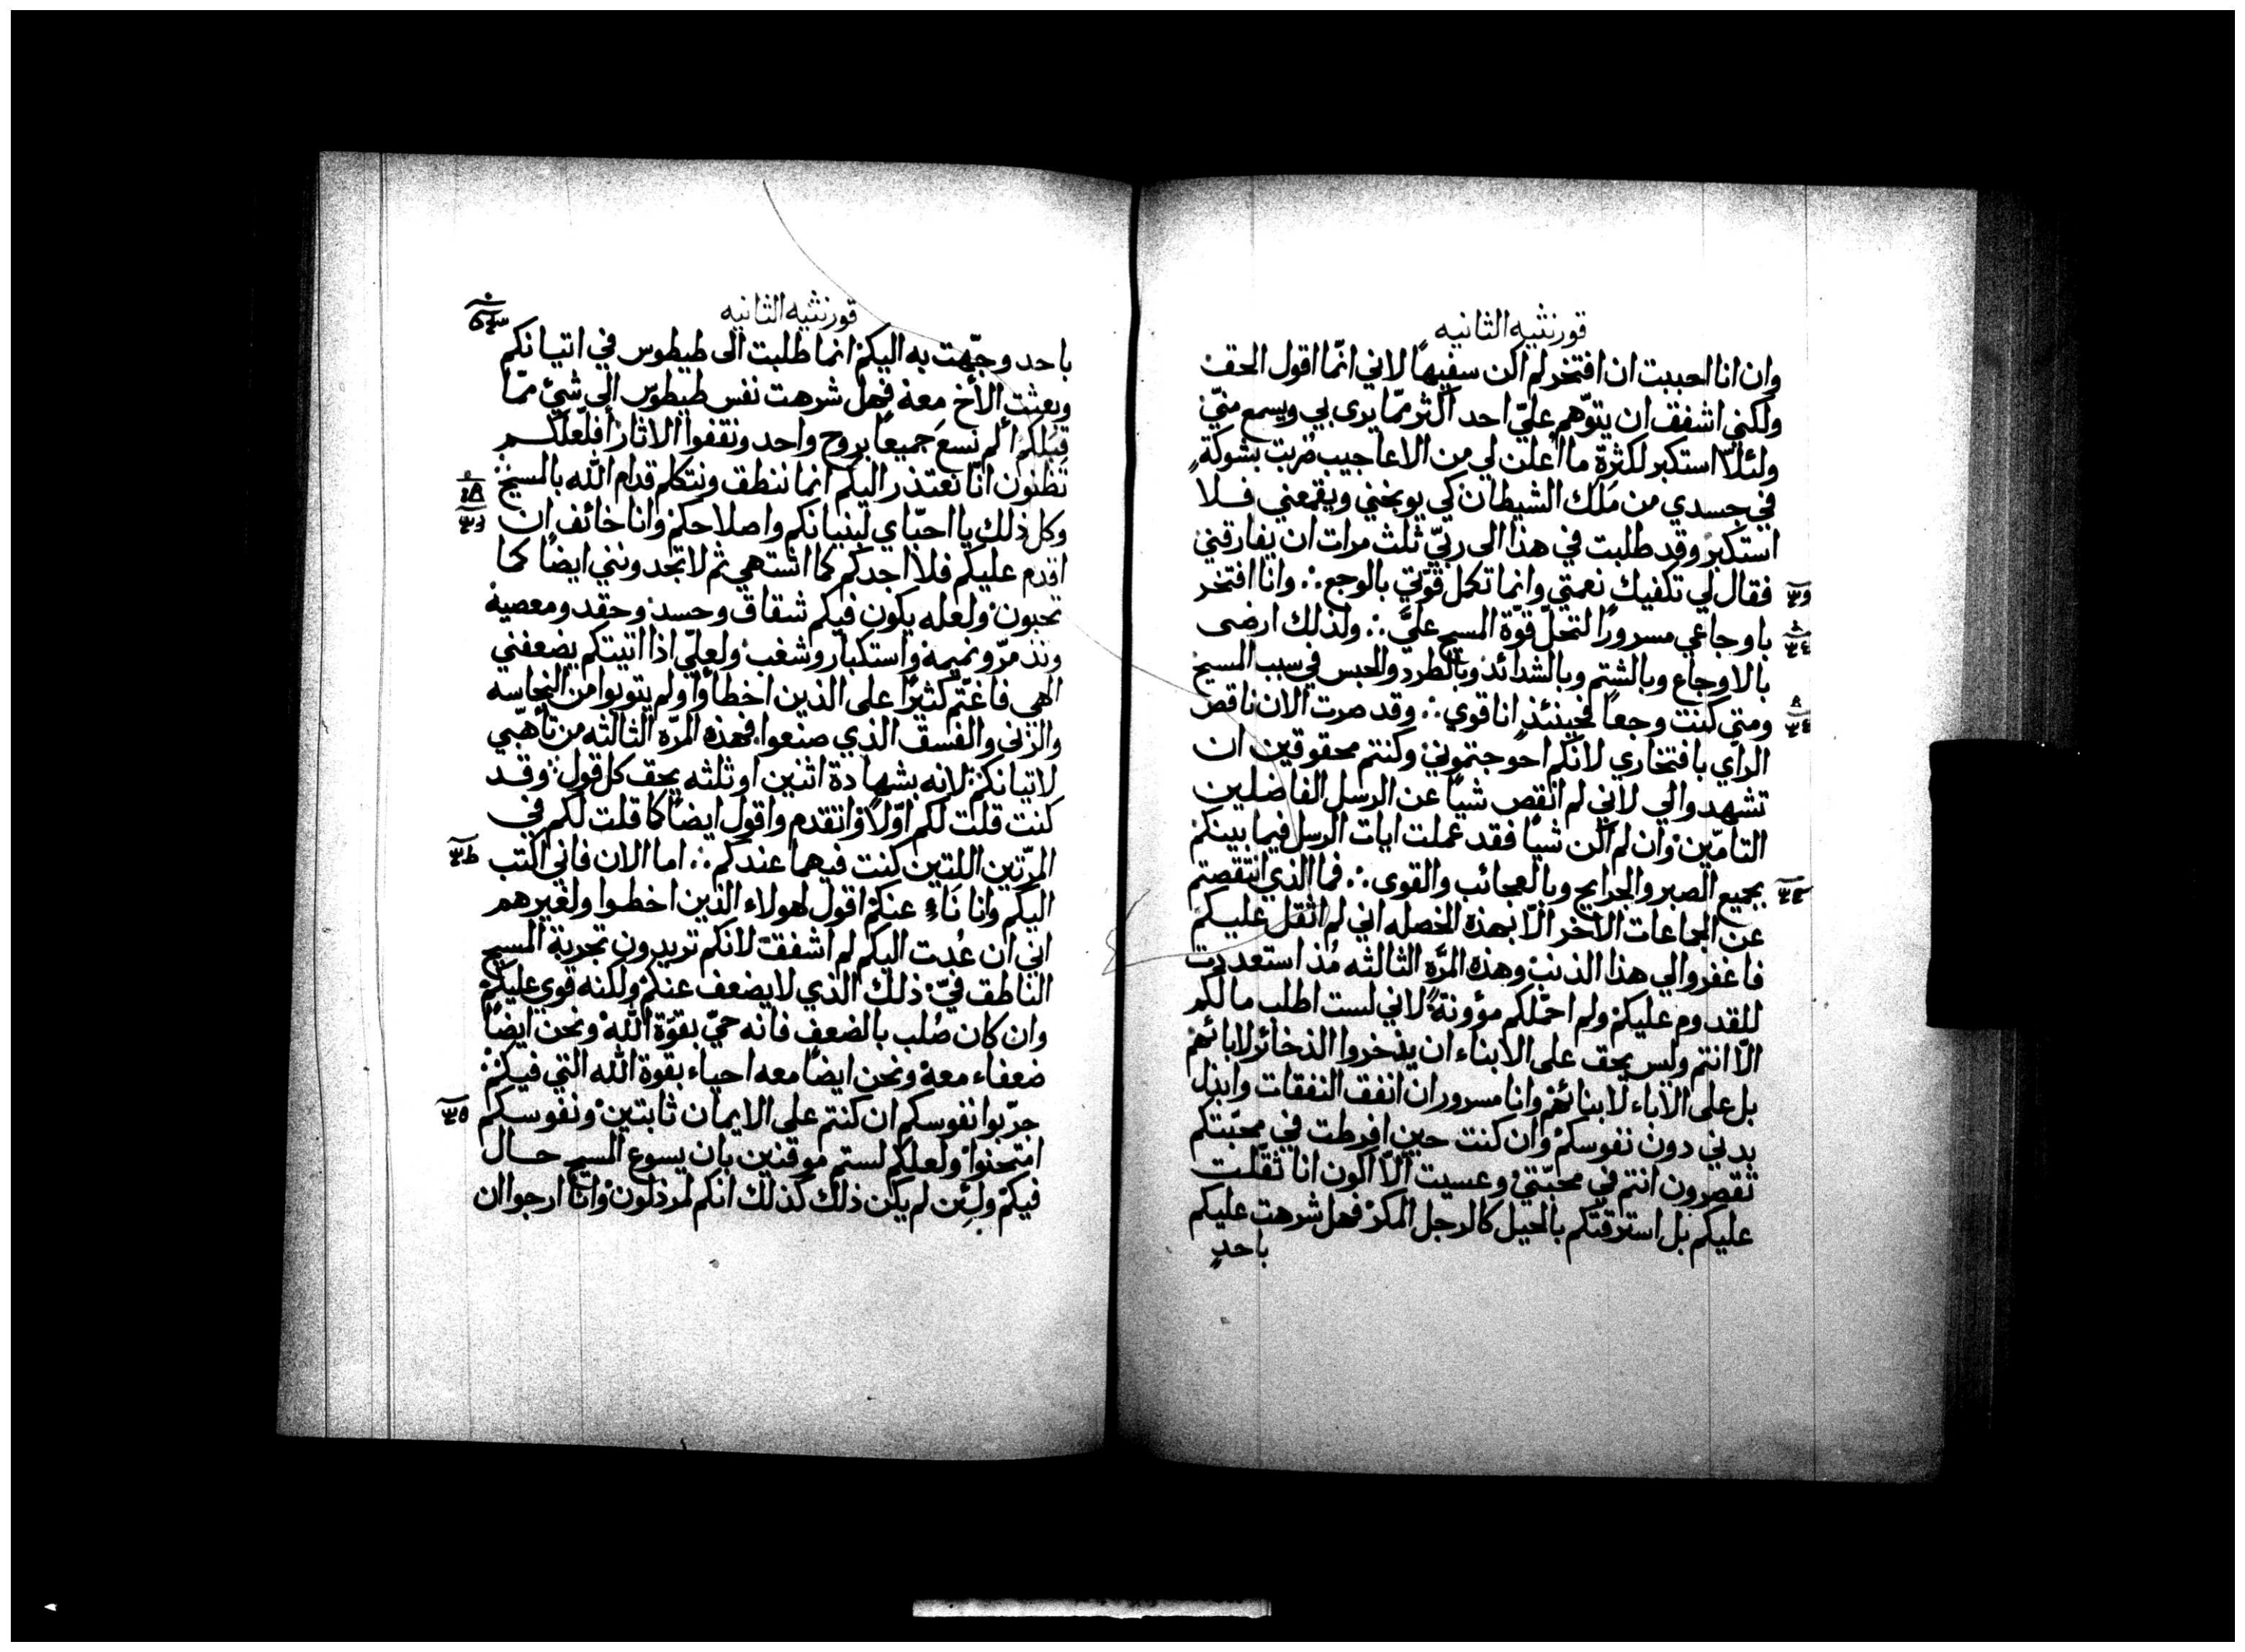 قورنثيه الثانيه
وان انا احببت ان افتخر لم اكن سفيهاً لاني انّما اقول الحق
ولكني اشفق ان يتوّهم عليّ احد اكثر ممّا يرى بي ويسمع منّي
ولئلّا استكبر لكثرة ما اُعلن لي من الاعاجيب ضربت بشوكةٍ
في جسدي من مَلَك الشيطان كي يوبخني ويقمعني فلا
استكبر وقد طلبت في هذا الى ربّي ثلث مرات ان يفارقني
فقال لي تكفيك نعمتي وانما تكمل قوّتي بالوجع ∴ وانا افتخر
باوجاعي مسرورًا لتحلّ قوّة المسيح عليَّ ∴ ولذلك ارضى
بالاوجاع وبالشتم وبالشدائد وبالطرد والحبس في سبب المسيح
ومتى كنت وجعاً فحينئذٍ انا قوي ∴ وقد صرت الان ناقص
الرأي بافتخاري لانّكم احوجتموني وكنتم محقوقين ان
تشهدوا لي لاني لم انقص شياً عن الرسل الفاضلين
التامّين وان لم اكن شياً فقد عملت ايات الرسل فيما بينكم
بجميع الصبر والجرايح وبالعجائب والقوى ∴ فما الذي انتقصتم
عن الجماعات الاُخر الّا بهذة الخصله اني لم اثقل عليكم
فاغفروا لي هذا الذنب وهذه المرّه الثالثه مُذ استعددت
للقدوم عليكم ولم احمّلكم مؤونةً لاني لست اطلب مالكم
الّا انتم وليس يحق على الابناء ان يذخروا الذخائر لابائهم
بل على الآباء لابنائهم وانا مسرور ان انفق النفقات وابذل
بدني دون نفوسكم وان كنت حين افرطت في محبّتكم
تقصرون انتم في محبّتي وعسيت الّا اكون انا ثقّلت
عليكم بل استرقتكم بالحيل كالرجل المكر فهل شرهت عليكم
باحدٍ
قورنثيه الثانيه
باحد وجّهت به اليكم انما طلبت الى طيطوس في اتيانكم
وبعثت الأخ معه فهل شرهت نفس طيطوس الى شيٍ ممّا
قبلكم ألم نسعَ جميعاً بروح واحد ونقفوا الاثار افلعلّكم
تظنون انّا نعتذر اليكم انما ننطق ونتكلم قدام الله بالمسيح
وكل ذلك يا احبّاي لبنيانكم واصلاحكم وانا خائف ان
اقدم عليكم فلا اجدكم كما اشتهي ثم لا تجدونني ايضاً كما
تحبون ولعله يكون فيكم شقاق وحسد وحقد ومعصية
وتذمرّ ونميمة واستكبار وشغب ولعلّي اذا اتيتكم يضعفني
الهي فاغتم كثيرًا على الذين اخطأوا ولم يتوبوا من النجاسه
والزنى والفسق الذي صنعوا فهذه المرّه الثالثه من تأهّبي
لاتيانكم لانه بشهادة اثنين او ثلثه يحق كل قول وقد
كنت قلت لكم اوّلاً واتقدم واقول ايضاً كما قلت لكم في
المرّتين اللتين كنت فيهما عندكم ∴ اما الان فاني اكتب
اليكم وانا نَاءٍ عنكم اقول لهولاء الذين اخطوا ولغيرهم
اني ان عُدت اليكم لم اشفق لانكم تريدون تجربة المسيح
الناطق فيّ ذلك الذي لا يضعف عنكم ولكنه قوي عليكم
وان كان صُلب بالضعف فانه حيّ بقوّة الله ونحن ايضاً
ضعفاء معه ونحن ايضاً معه احياء بقوة الله التي فيكم
جرّبوا نفوسكم ان كنتم على الايمان ثابتين ونفوسكم
امتحنوا ولعلكم لستم موقنين بان يسوع المسيح حال
فيكم ولئِن لم يكن ذلك كذلك انكم لمرذلون وانّا ارجوا ان